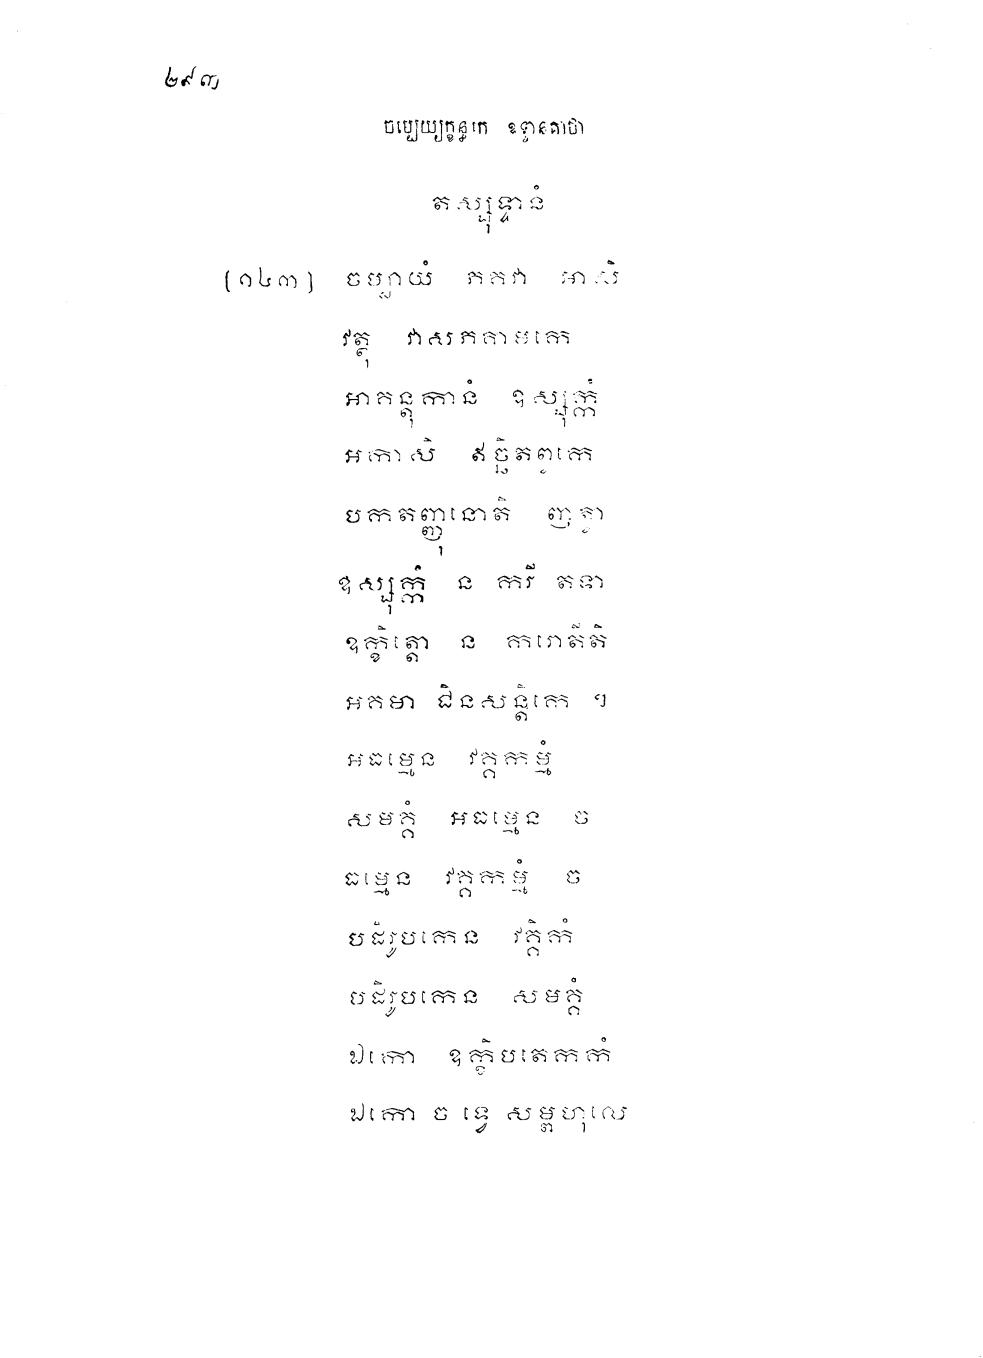 ២៩៣
ចម្បេយ្យក្ខន្ធកេ ឧទ្ទានគាថា
តស្សុទ្ទានំ
(១៤៣) ចម្បាយំ ភគវា អាសិ
វត្ថុ វាសភគាមកេ
អាគន្តុកានំ ឧស្សុក្កំ
អកាសិ ឥច្ឆិតព្ពកេ
បកតញ្ញុនោតិ ញត្វា
ឧស្សុក្កំ ន ករី តទា
ឧក្ខិត្តោ ន ករោតីតិ
អគមា ជិនសន្តិកេ ។
អធម្មេន វគ្គកម្មំ
សមគ្គំ អធម្មេន ច
ធម្មេន វគ្គកម្មំ ច
បដិរូបកេន វគ្គិកំ
បដិរូបកេន សមគ្គំ
ឯកោ ឧក្ខិបតេកកំ
ឯកោ ច ទ្វេ សម្ពហុលេ